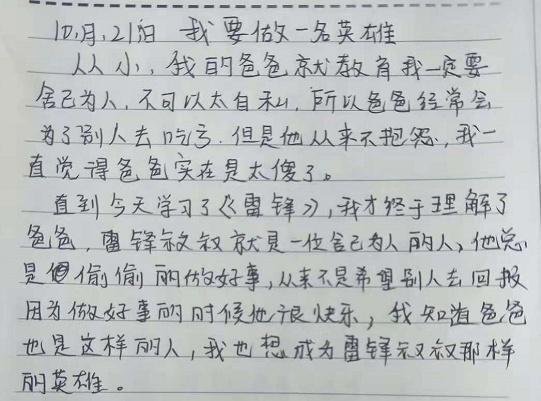 10.月.21日 我要做一名英雄
从小，我的爸爸就教育我一定要
舍己为人，不可以太自私，所以爸爸经常会
为了别人去吃亏.但是他从来不抱怨，我一
直觉得爸爸实在是太傻了。
直到今天学习了《雷锋》，我才终于理解了
爸爸，雷锋叔叔就是一位舍己为人的人，他总
是偷偷的做好事，从来不是希望别人去回报
因为做好事的时候他很快乐，我知道爸爸
也是这样的人，我也想成为雷锋叔叔那样
的英雄。